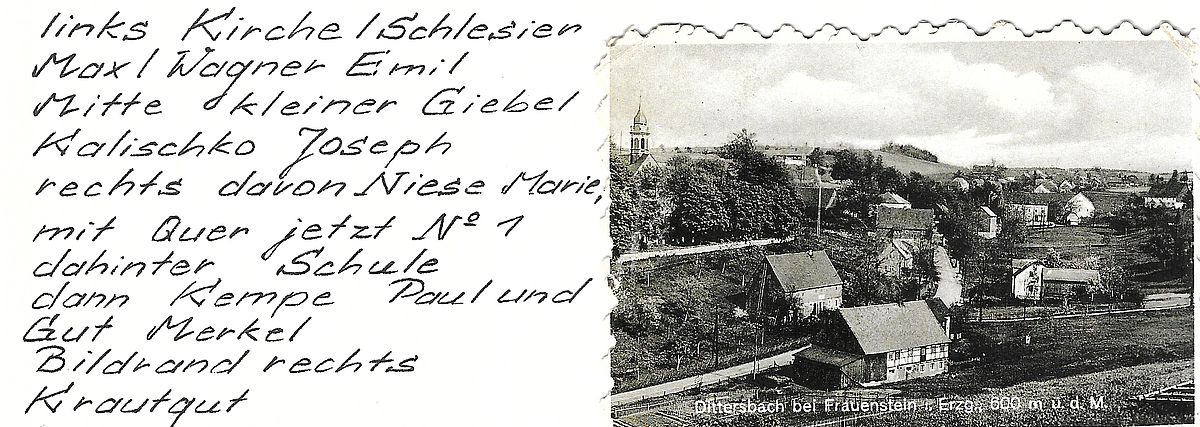 links Kirche / Schlesier
Max / Wagner Emil
Mitte kleiner Giebel
Kalischko Joseph
rechts davon Niese Marie,
mit Quer jetzt Nº 1
dahinter Schule
dann Kempe Paul und
Gut Merkel
Bildrand rechts
Krautgut
Dittersbach bei Frauenstein i. Erzg., 600 m ü. d. M.